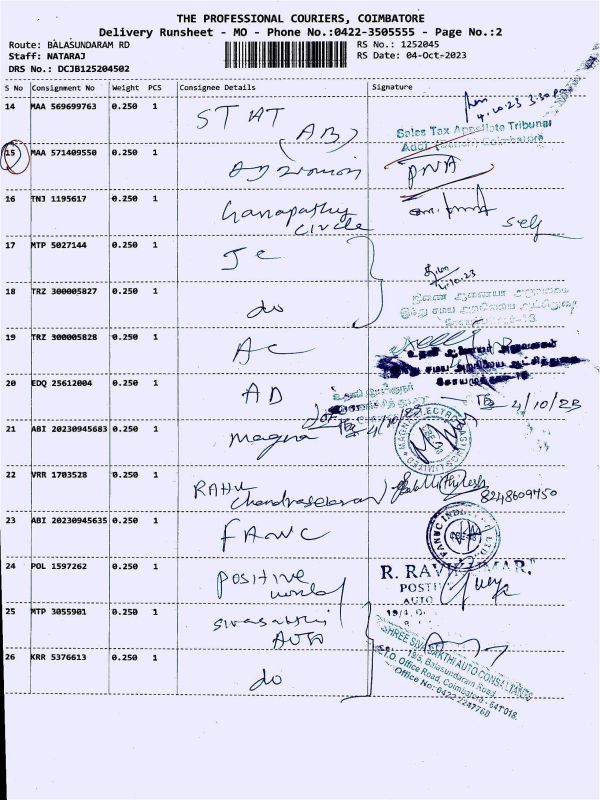 THE PROFESSIONAL COURIERS, COIMBATORE
Delivery Runsheet - MO - Phone No.:0422-3505555 - Page No.:2
Route: BALASUNDARAM RD
RS No.: 1252045
Staff: NATARAJ
RS Date: 04-Oct-2023
DRS No.: DCJB125204502
S No Consignment No Weight PCS Consignee Details Signature
14 MAA 569699763 0.250 1 STAT
4.10.23 3.30
Sales Tax Appellate Tribunal
Coimbatore
15 MAA 571409550 0.250 1
(AB)
16 TNJ 1195617 0.250 1 Ganapathy
circle
self
17 MTP 5027144 0.250 1 JC
4.10.23
இணை ஆணையர் அலுவலகம்
இந்து சமய அறநிலைய ஆட்சித்துறை
18 TRZ 300005827 0.250 1 do
19 TRZ 300005828 0.250 1 AC
உதவி ஆணையர் அலுவலகம்
இந்து சமய அறநிலைய ஆட்சித்துறை
கோயமுத்தூர்-18
20 EDQ 25612004 0.250 1 AD
4/10/23
4/10/23
21 ABI 20230945683 0.250 1 magna
MAGNA ELECTRO CASTINGS LIMITED
22 VRR 1703528 0.250 1 RAHU
Chandrasekaran
8248609750
23 ABI 20230945635 0.250 1 FANUC
FANUC INDIA
24 POL 1597262 0.250 1 Positive
world
R. RAVIKUMAR
AUTO
25 MTP 3055901 0.250 1 Sivasakthi
AUTO
SHREE SIVASAKTHI AUTO CONSULTANTS
19/5, Balasundaram Road,
R.T.O. Office Road, Coimbatore - 641 018.
Office No: 0422-2247760
26 KRR 5376613 0.250 1 do